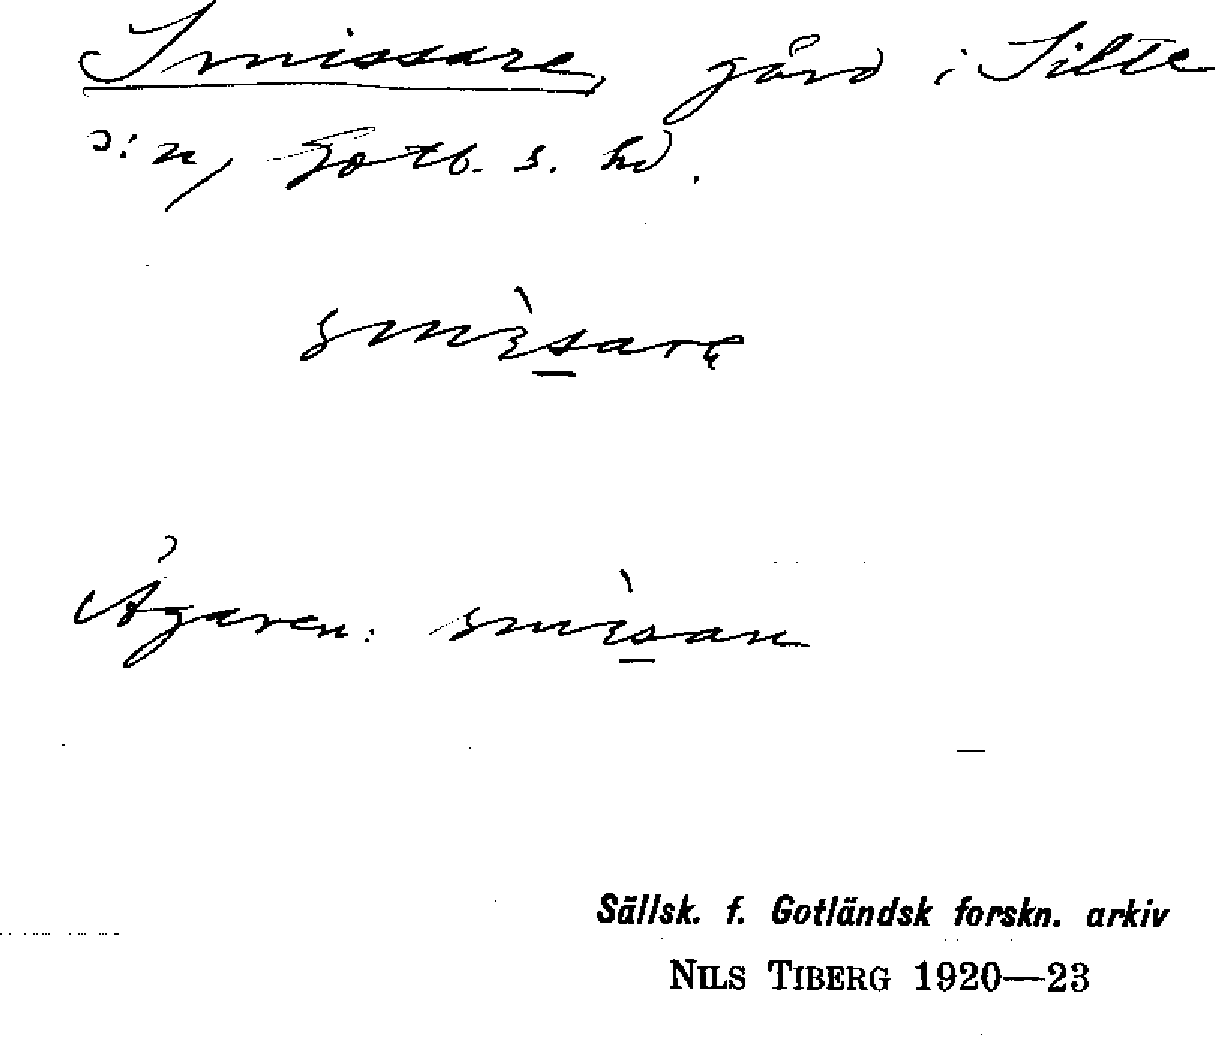 Smissare, gård i Silte
s:n, Gotl. s. hd.
smìsarɛ
Ägaren: smìsan
Sällsk. f. Gotländsk forskn. arkiv
NILS TIBERG 1920—23